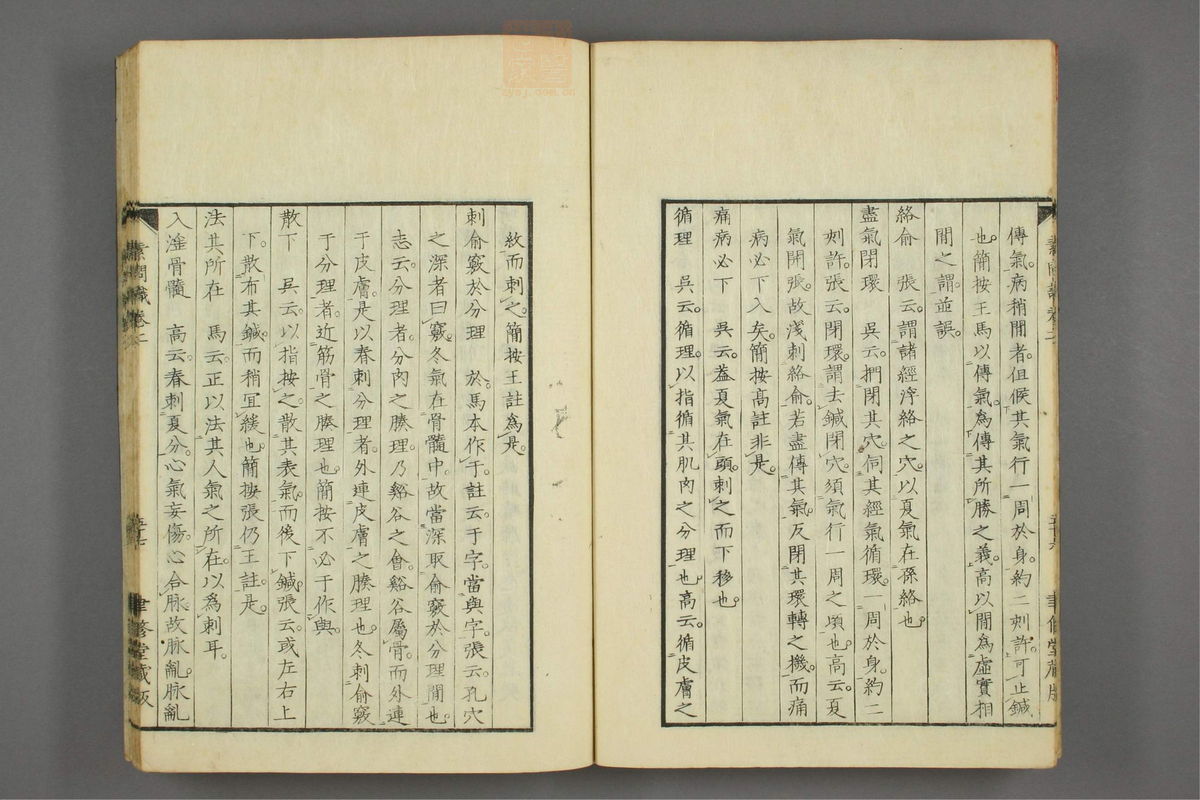 傳氣。病稍間者。但候其氣行一周於身。約二刻許。可止鍼
也。簡按王馬以傳氣。爲傳其所勝之義。高以間爲虛實相
間之謂。並誤。
絡俞　張云。謂諸經浮絡之穴。以夏氣在孫絡也。
盡氣閉環　吳云。捫閉其穴。伺其經氣循環。一周於身。約二
刻許。張云。閉環。謂去鍼閉穴。須氣行一周之頃也。高云。夏
氣開張。故淺刺絡俞。若盡傳其氣。反閉其環轉之機。而痛
病必下入矣。簡按高註非是。
痛病必下　吳云。蓋夏氣在頭。刺之而下移也。
循理　吳云。循理。以指循其肌肉之分理也。高云。循皮膚之
素問識卷二
聿修堂藏版
紋而刺之。簡按王註爲是。
刺俞竅於分理　於馬本作于。註云。于字。當與字。張云。孔穴
之深者曰竅。冬氣在骨髓中。故當深取俞竅於分理間也。
志云。分理者。分肉之腠理。乃谿谷之會。谿谷屬骨。而外連
于皮膚。是以春刺分理者。外連皮膚之腠理也。冬刺俞竅
于分理者。近筋骨之腠理也。簡按不必于作與。
散下　吳云。以指按之。散其表氣。而後下鍼。張云。或左右上
下。散布其鍼。而稍宜緩也。簡按張仍王註。是。
法其所在　馬云。正以法其人氣之所在。以爲刺耳。
入淫骨髓　高云。春刺夏分。心氣妄傷。心合脉。故脉亂。脉亂
素問識卷二
五十七
聿修堂藏版